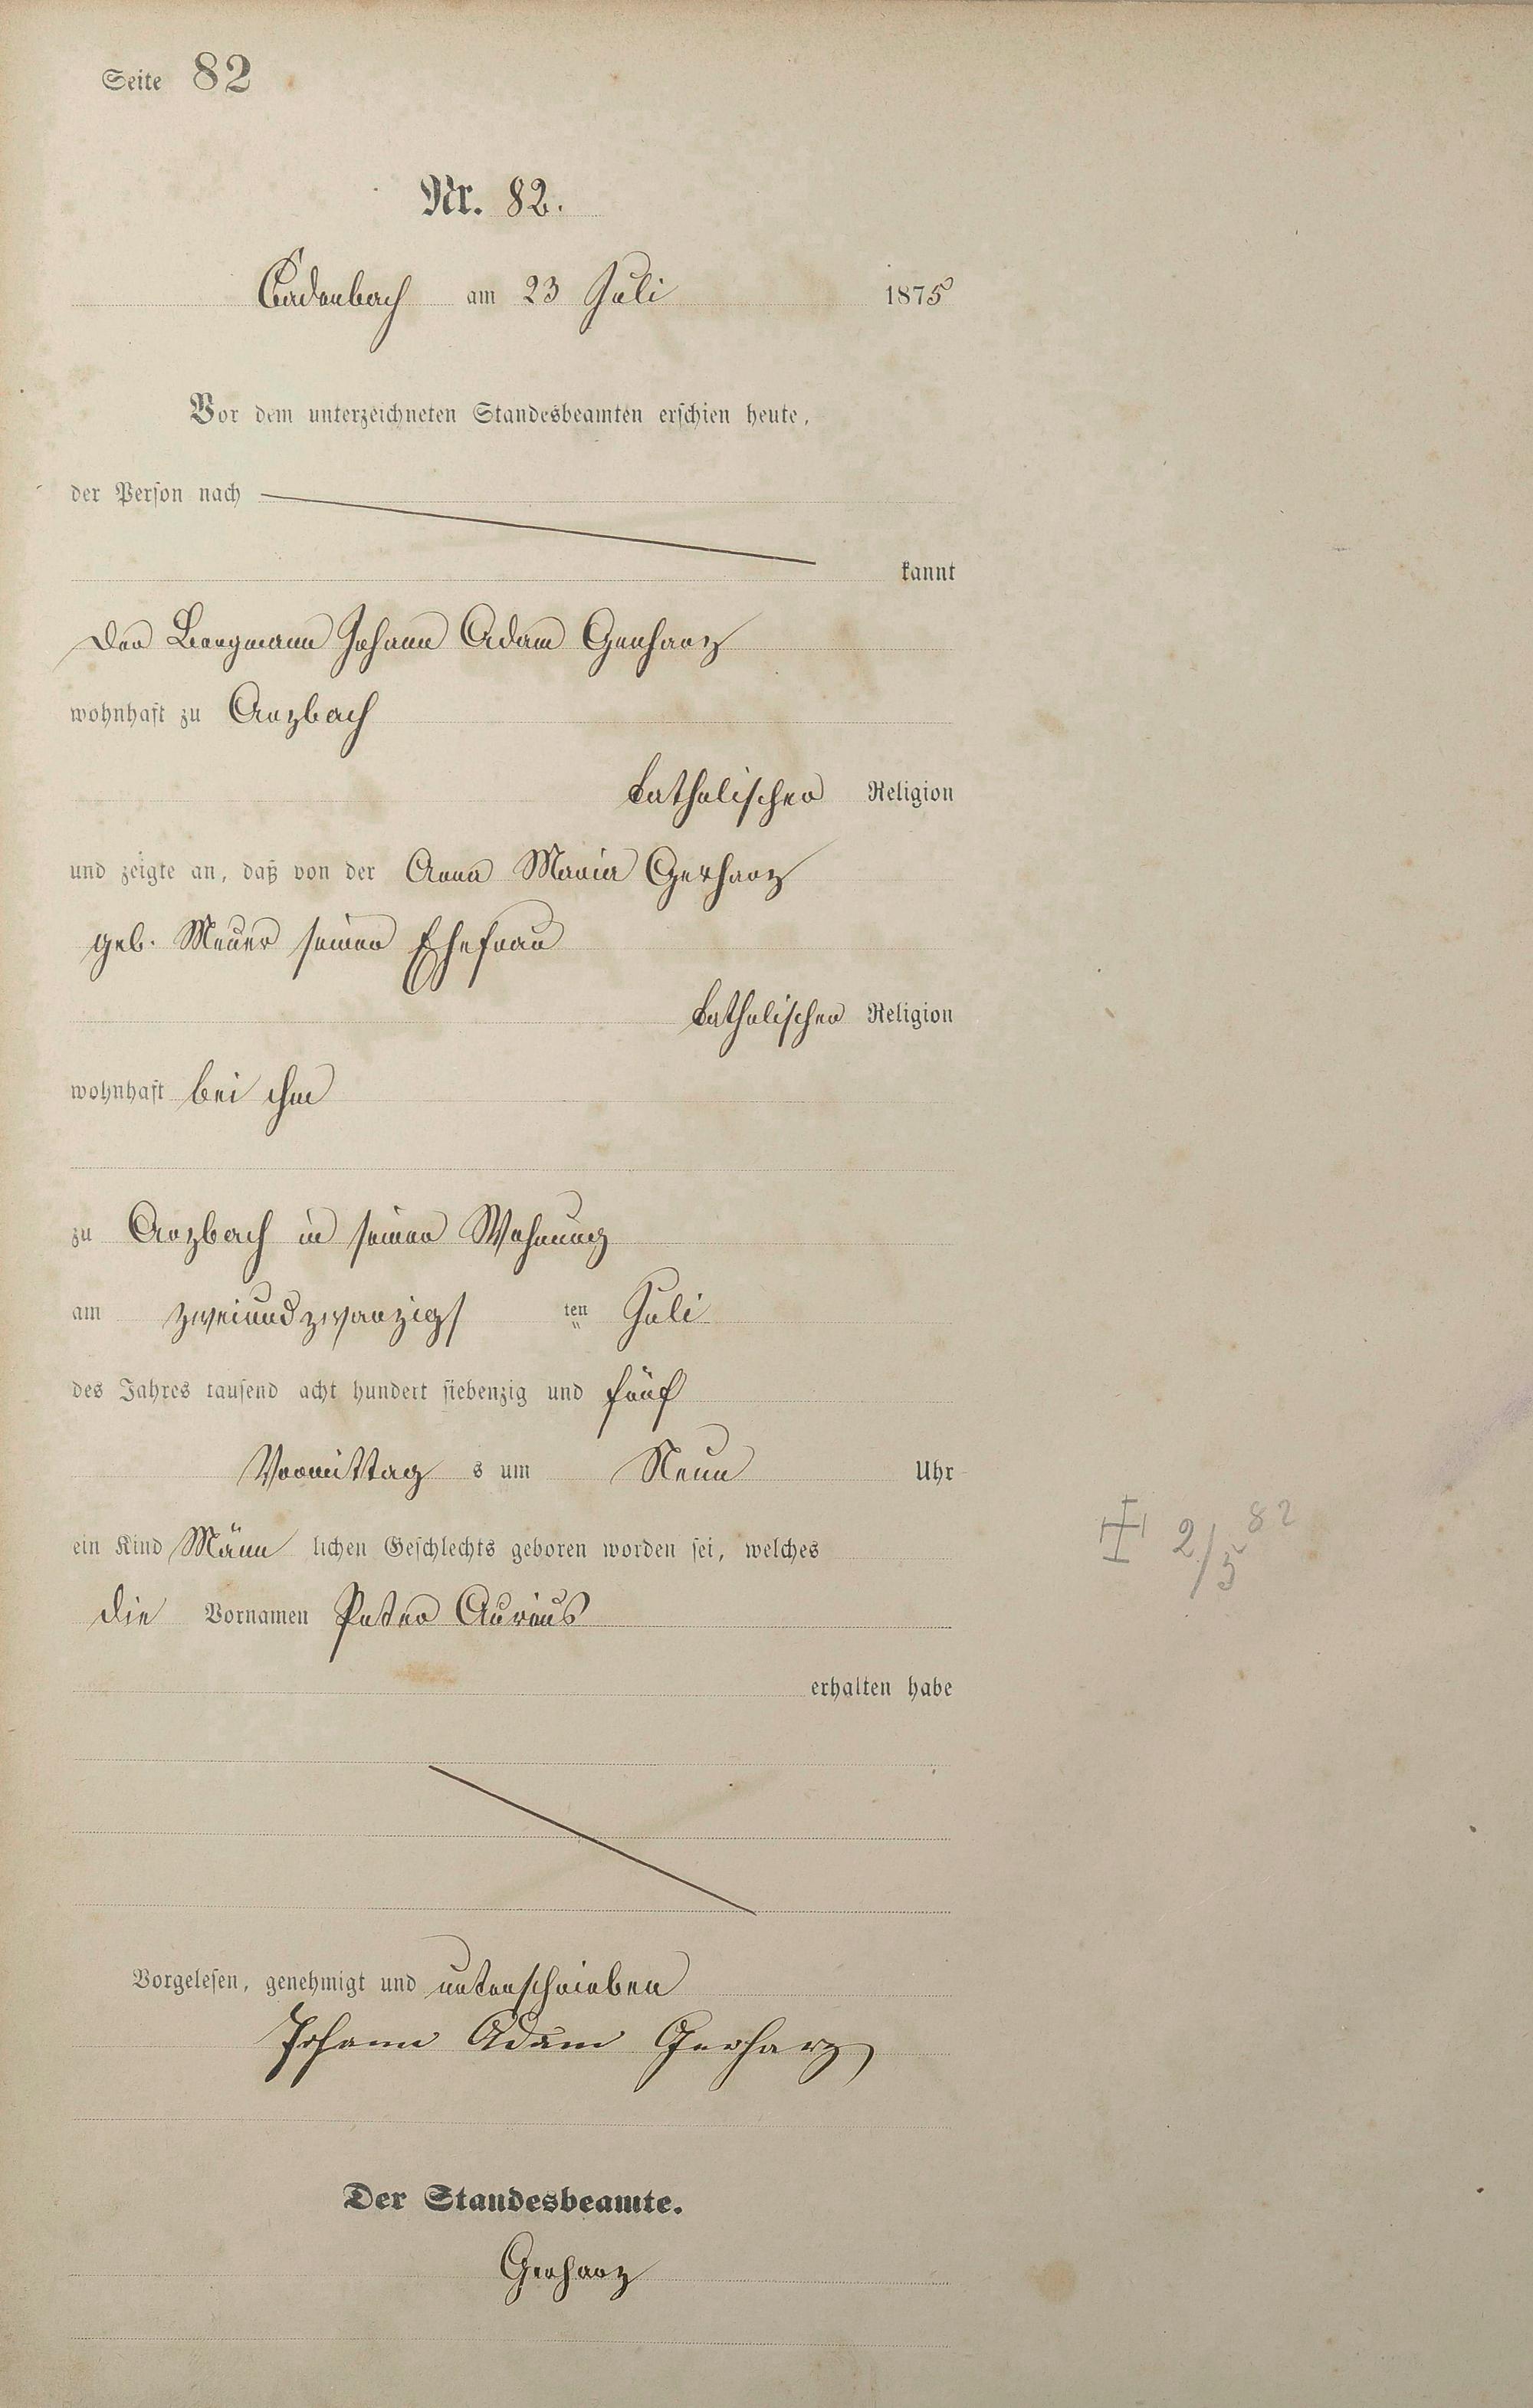 Seite 82
Nr. 82.
Cadenbach am 23 Juli 1875
Vor dem unterzeichneten Standesbeamten erschien heute,
der Person nach
kannt
Der Bergmann Johann Adam Gerharz
wohnhaft zu Arzbach
katholischer Religion
und zeigte an, daß von der Anna Maria Gerharz
geb. Meuer seiner Ehefrau
katholischer Religion
wohnhaft bei ihm
zu Arzbach in seiner Wohnung
am zweiundzwanzigs ten Juli
des Jahres tausend acht hundert siebenzig und fünf
Vormittag s um Neun Uhr
ein Kind Männ lichen Geschlechts geboren worden sei, welches
2/5 82
die Vornamen Peter
erhalten habe
Vorgelesen, genehmigt und unterschrieben
Johann Adam Gerharz
Der Standesbeamte.
Gerharz